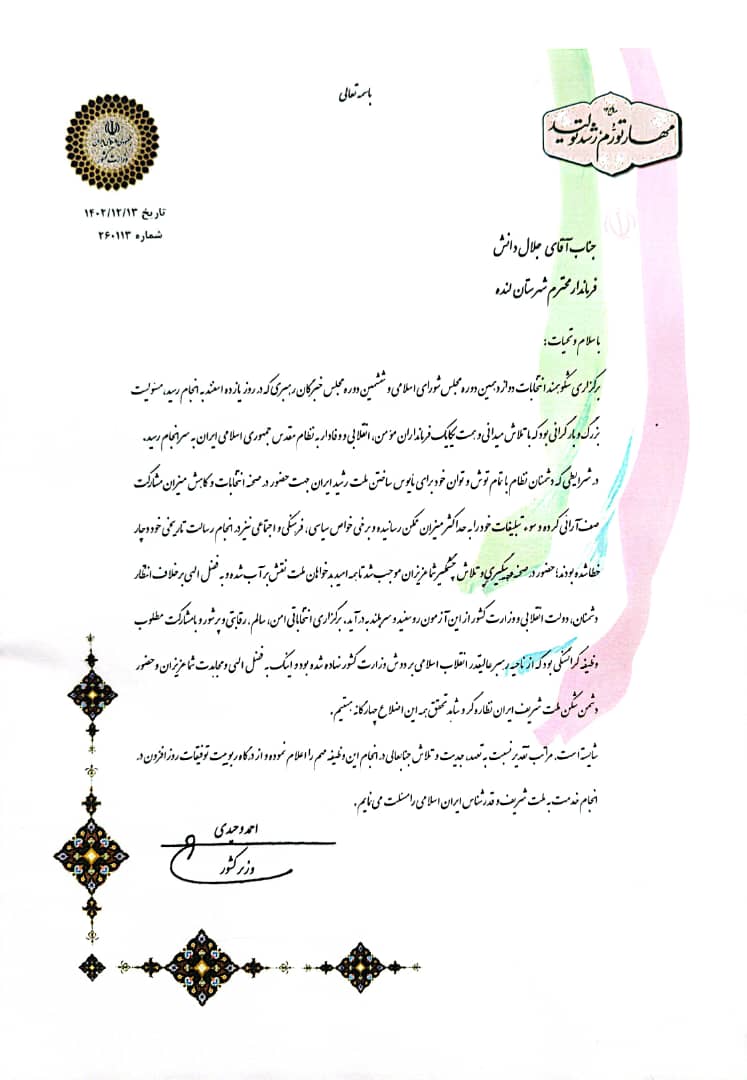 باسمه تعالی
سال
مهار تورم، رشد تولید
جمهوری اسلامی ایران
وزارت کشور
تاریخ ۱۴۰۲/۱۲/۱۳
شماره ۲۶۰۱۱۳
جناب آقای جلال دانش
فرماندار محترم شهرستان لنده
با سلام و تحیات؛
برگزاری شکوهمند انتخابات دوازدهمین دوره مجلس شورای اسلامی و ششمین دوره مجلس خبرگان رهبری که در روز یازده اسفند به انجام رسید، مسئولیت
بزرگ و بار گرانی بود که با تلاش میدانی و همت یکایک فرمانداران مؤمن، انقلابی و وفادار به نظام مقدس جمهوری اسلامی ایران به سرانجام رسید.
در شرایطی که دشمنان نظام با تمام توش و توان خود برای مأیوس ساختن ملت رشید ایران جهت حضور در صحنه انتخابات و کاهش میزان مشارکت
صف آرائی کرده و سوء تبلیغات خود را به حداکثر میزان ممکن رسانیده و برخی خواص سیاسی، فرهنگی و اجتماعی نیز در انجام رسالت تاریخی خود دچار
خطا شده بودند؛ حضور در صحنه و پیگیری و تلاش چشمگیر شما عزیزان موجب شد تا همه امید بدخواهان ملت نقش بر آب شده و به فضل الهی بر خلاف انتظار
دشمنان، دولت انقلابی و وزارت کشور از این آزمون رو سفید و سربلند به در آید. برگزاری انتخاباتی امن، سالم، رقابتی و پرشور و با مشارکت مطلوب
وظیفه گرانسنگی بود که از ناحیه رهبر عالیقدر انقلاب اسلامی بر دوش وزارت کشور نهاده شده بود و اینک به فضل الهی و مجاهدت شما عزیزان و حضور
دشمن شکن ملت شریف ایران نظاره گر و شاهد تحقق همه این اضلاع چهارگانه هستیم.
شایسته است. مراتب تقدیر نسبت به تعهد، جدیت و تلاش جنابعالی در انجام این وظیفه مهم را اعلام نموده و از درگاه ربوبیت توفیقات روز افزون در
انجام خدمت به ملت شریف و قدرشناس ایران اسلامی را مسئلت می نمایم.
احمد وحیدی
وزیر کشور